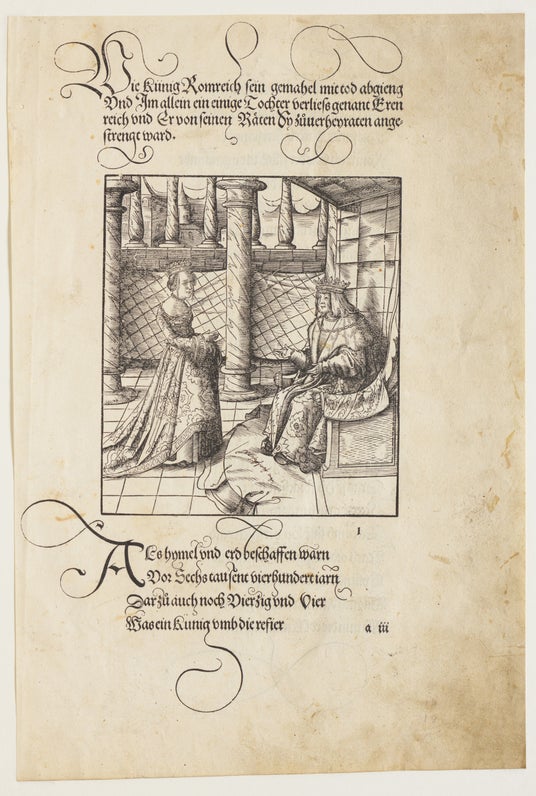 Wie Künig Romreich sein gemahel mit tod abgieng
Vnd Im allein ein einige Tochter verließ genant Eren
reich vnd Er von seinen Räten Dy zůuerheyraten ange
strengt ward.
1
ALs hymel vnd erd beschaffen warn
Vor Sechs tausent vierhundert iarn
Darzů auch noch Vierzig vnd Vier
Was ein Künig vmb die refier
a iii